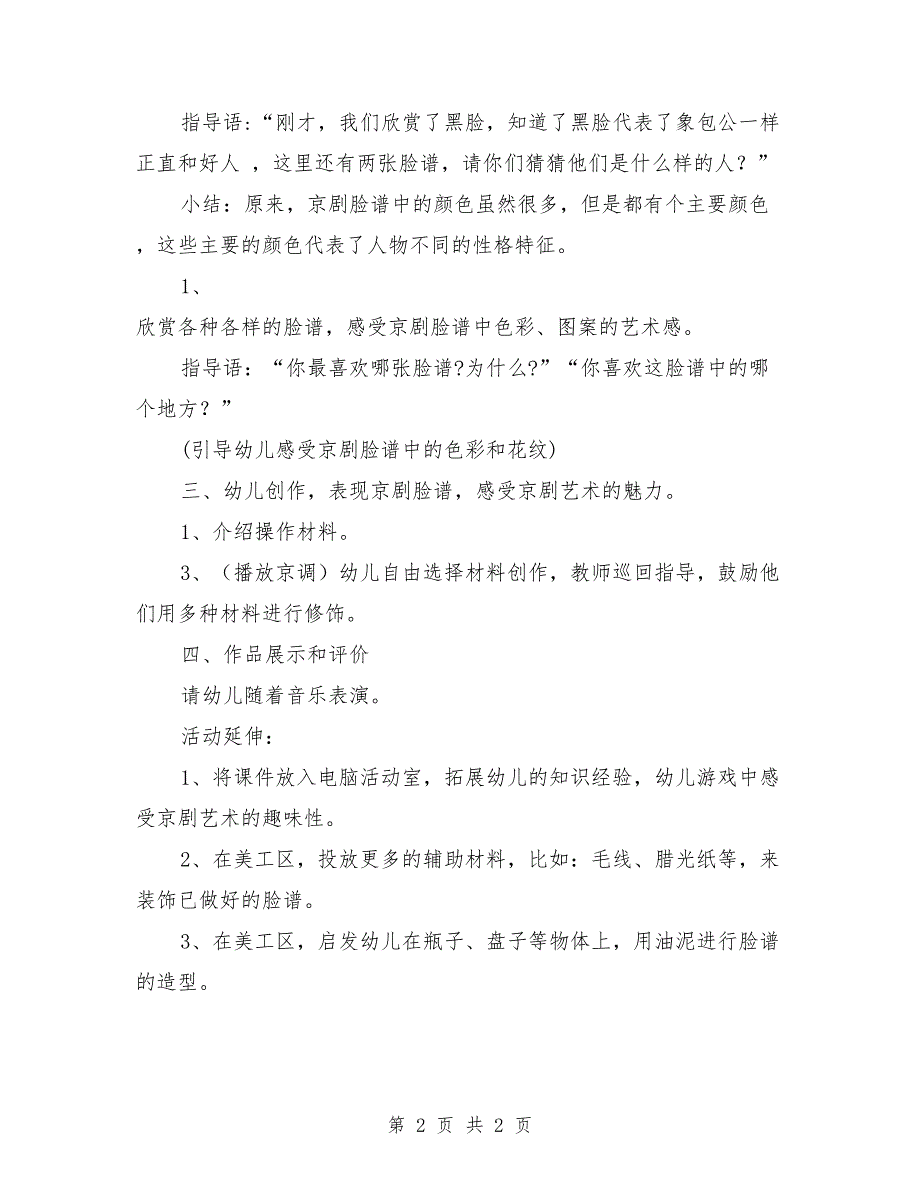 指导语:“刚才，我们欣赏了黑脸，知道了黑脸代表了象包公一样
正直和好人 ，这里还有两张脸谱，请你们猜猜他们是什么样的人？”
小结：原来，京剧脸谱中的颜色虽然很多，但是都有个主要颜色
，这些主要的颜色代表了人物不同的性格特征。
1、
欣赏各种各样的脸谱，感受京剧脸谱中色彩、图案的艺术感。
指导语：“你最喜欢哪张脸谱?为什么?”“你喜欢这脸谱中的哪
个地方？”
(引导幼儿感受京剧脸谱中的色彩和花纹)
三、幼儿创作，表现京剧脸谱，感受京剧艺术的魅力。
1、介绍操作材料。
3、（播放京调）幼儿自由选择材料创作，教师巡回指导，鼓励他
们用多种材料进行修饰。
四、作品展示和评价
请幼儿随着音乐表演。
活动延伸：
1、将课件放入电脑活动室，拓展幼儿的知识经验，幼儿游戏中感
受京剧艺术的趣味性。
2、在美工区，投放更多的辅助材料，比如：毛线、腊光纸等，来
装饰已做好的脸谱。
3、在美工区，启发幼儿在瓶子、盘子等物体上，用油泥进行脸谱
的造型。
第 2 页 共 2 页